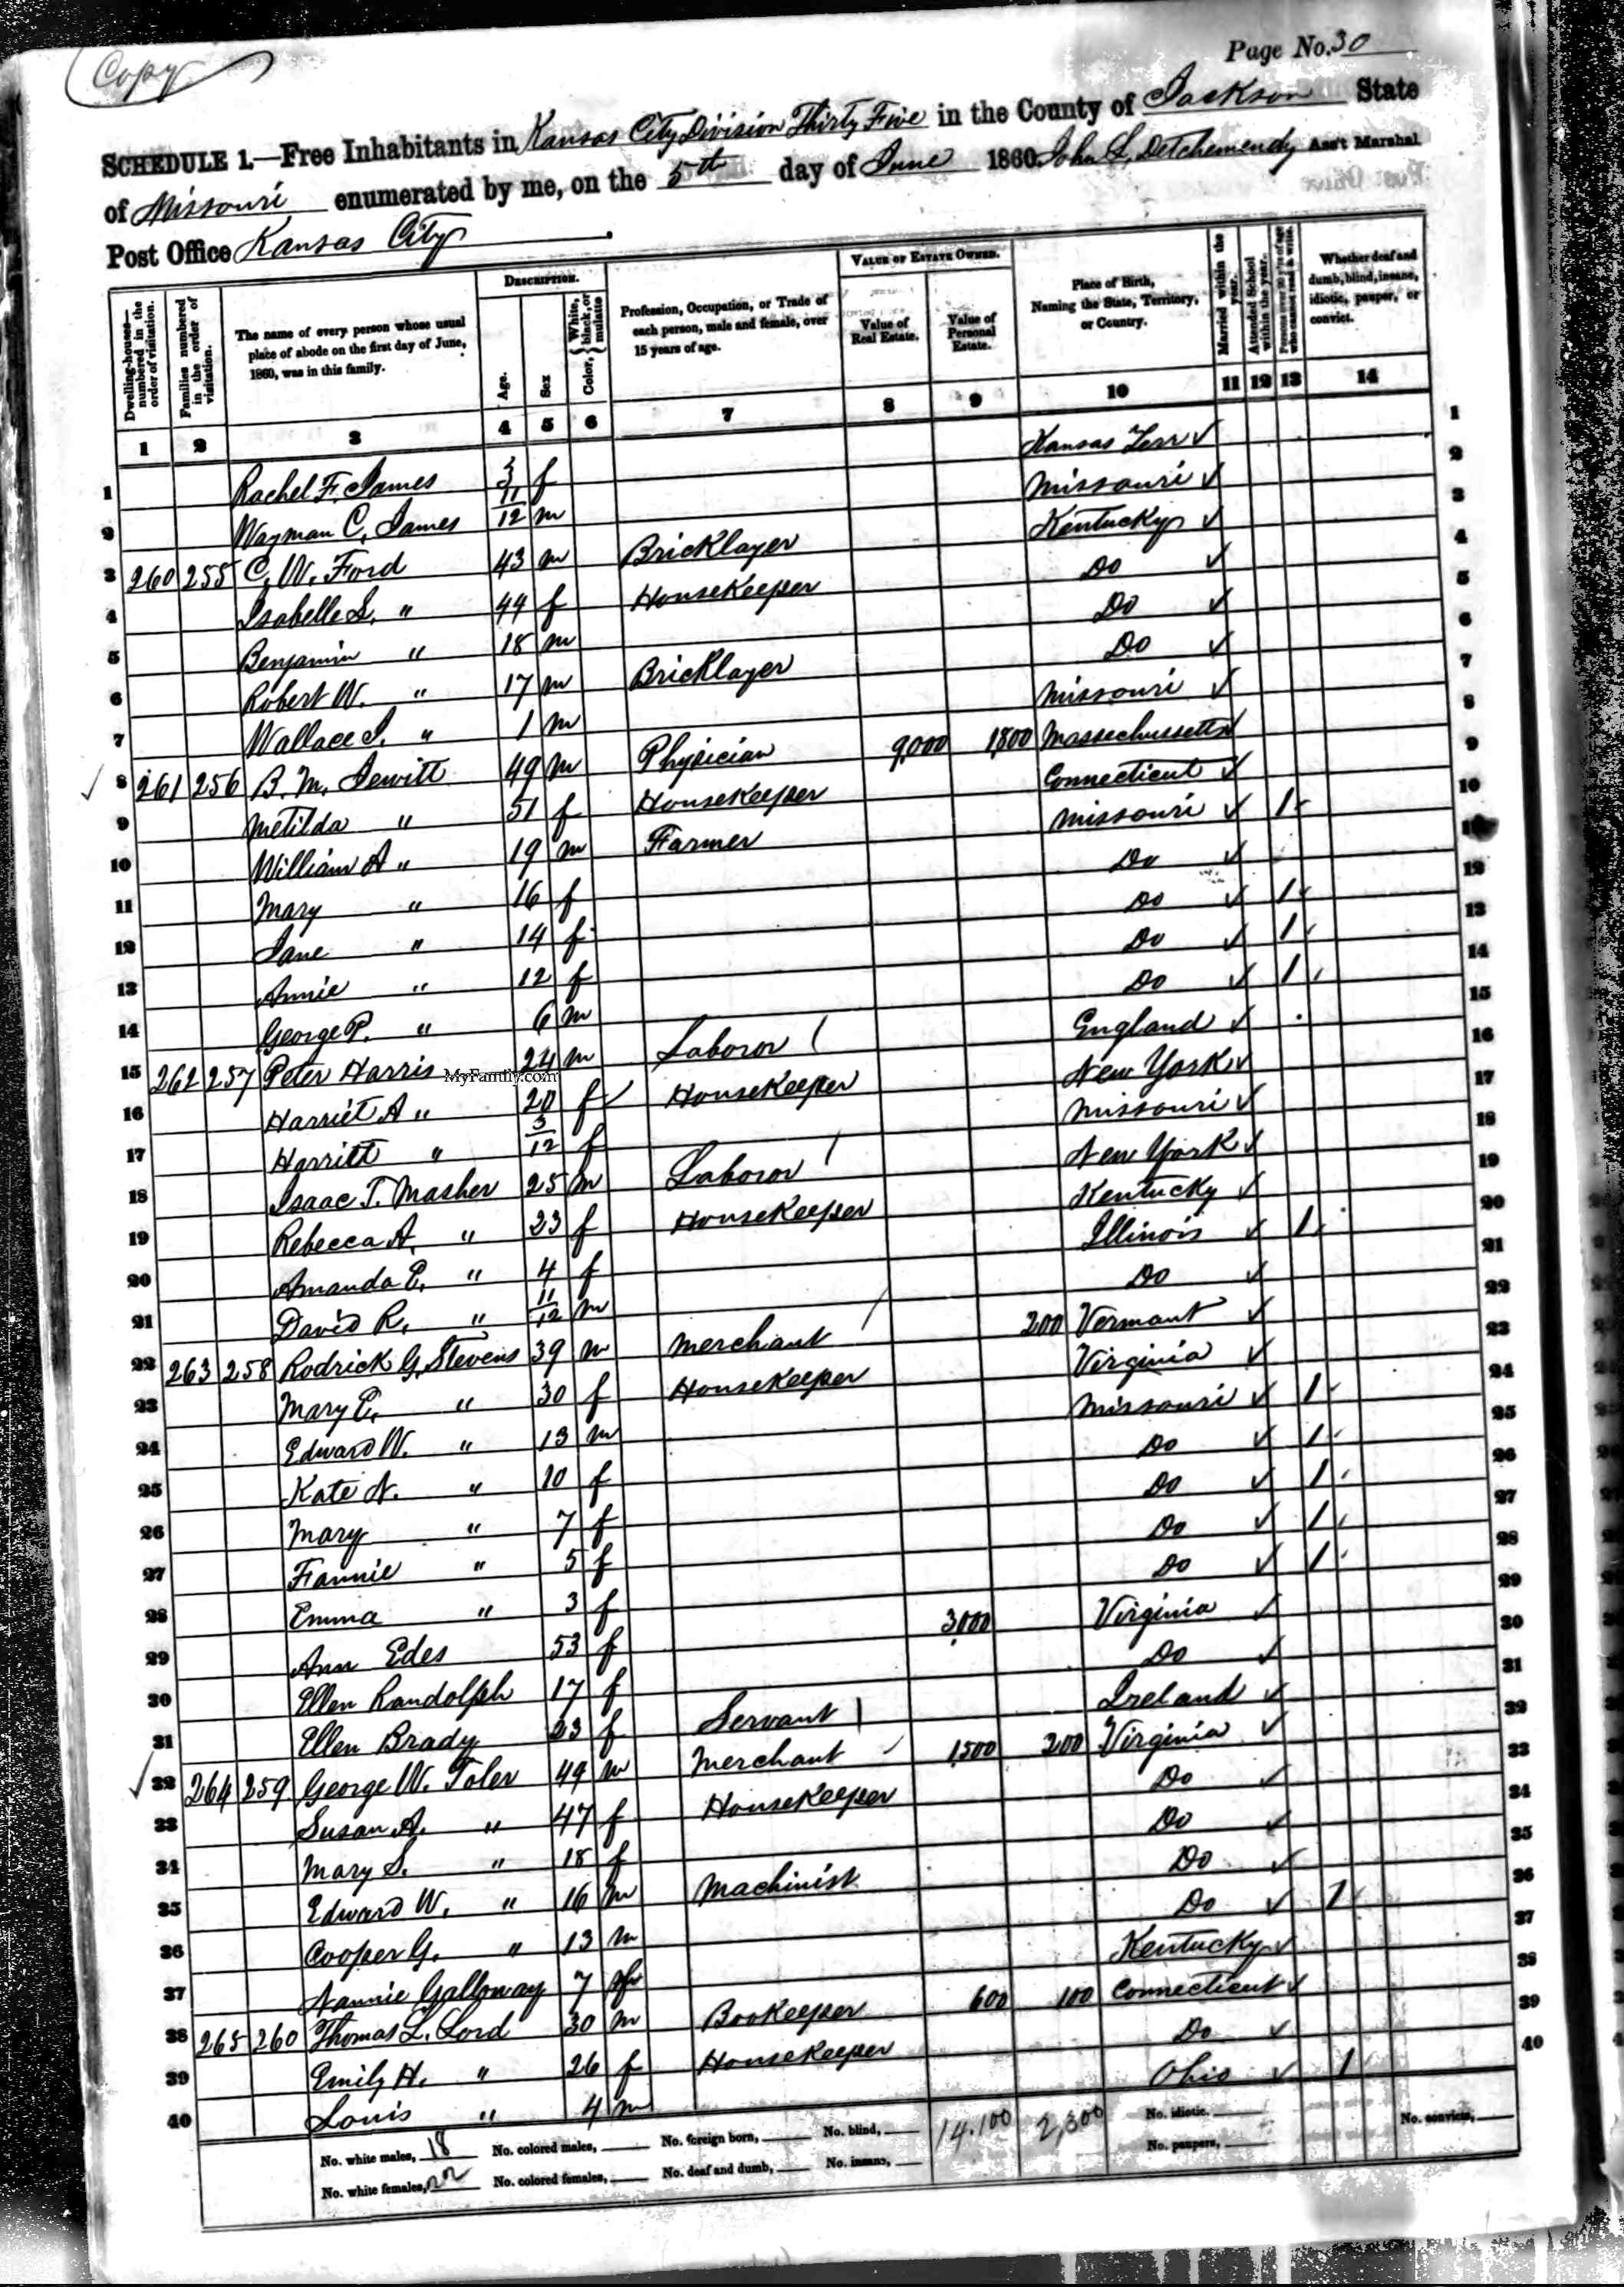 Copy
Page No. 30
SCHEDULE 1.—Free Inhabitants in Kansas City Division Thirty Five in the County of Jackson State
of Missouri enumerated by me, on the 5th day of June 1860. John L. Detchemendy Ass't Marshal
Post Office Kansas City.
Dwelling-houses—numbered in the order of visitation.
Families numbered in the order of visitation.
The name of every person whose usual place of abode on the first day of June, 1860, was in this family.
DESCRIPTION.
Age.
Sex
Color, { White, black, or mulatto
Profession, Occupation, or Trade of each person, male and female, over 15 years of age.
VALUE OF ESTATE OWNED.
Value of Real Estate.
Value of Personal Estate.
Place of Birth, Naming the State, Territory, or Country.
Married within the year.
Attended School within the year.
Persons over 20 y'rs of age who cannot read & write.
Whether deaf and dumb, blind, insane, idiotic, pauper, or convict.
1 2 3 4 5 6 7 8 9 10 11 12 13 14
1 Rachel F. James f Kansas Terr ✓ 1
2 Wayman C. James 11/12 m Missouri ✓ 2
3 260 255 C. W. Ford 43 m Bricklayer Kentucky ✓ 3
4 Isabelle S. " 44 f HouseKeeper Do ✓ 4
5 Benjamin " 18 m Do ✓ 5
6 Robert W. " 17 m Bricklayer Do ✓ 6
7 Wallace J. " 1 m Missouri ✓ 7
✓ 8 261 256 B. M. Jewitt 49 m Physician 9,000 1,800 Massechussetts ✓ 8
9 Metilda " 51 f HouseKeeper Connecticut ✓ 9
10 William A " 19 m Farmer Missouri ✓ 1 10
11 Mary " 16 f Do ✓
12 Jane " 14 f Do ✓ 1 12
13 Annie " 12 f Do ✓ 1 13
14 George P. " 6 m Do ✓ 1 14
15 262 257 Peter Harris 24 m Laboror England ✓ 15
MyFamily.com
16 Harriet A " 20 f HouseKeeper New York ✓ 16
17 Harriet " 3/12 f Missouri ✓ 17
18 Isaac T. Masher 25 m Laboror New York ✓ 18
19 Rebecca A. " 23 f HouseKeeper Kentucky ✓ 19
20 Amanda E. " 4 f Illinois ✓ 1 20
21 David R. " 11/12 m Do ✓ 21
22 263 258 Rodrick G. Stevens 39 m Merchant 200 Vermont ✓ 22
23 Mary E. " 30 f HouseKeeper Virginia ✓ 23
24 Edward W. " 13 m Missouri ✓ 1 24
25 Kate N. " 10 f Do ✓ 1 25
26 Mary " 7 f Do ✓ 1 26
27 Fannie " 5 f Do ✓ 1 27
28 Emma " 3 f Do ✓ 1 28
29 Ann Edes 53 f 3,000 Virginia ✓ 29
30 Ellen Randolph 17 f Do ✓ 30
31 Ellen Brady 23 f Servant Ireland ✓ 31
✓ 32 264 259 George W. Toler 49 m Merchant 1,500 200 Virginia ✓ 32
33 Susan A. " 47 f HouseKeeper Do ✓ 33
34 Mary S. " 18 f Do ✓ 34
35 Edward W. " 16 m Machinist Do ✓ 35
36 Cooper G. " 13 m Do ✓ 1 36
37 Nannie Galloway 7 f Kentucky ✓ 37
38 265 260 Thomas L. Lord 30 m BooKeeper 600 100 Connecticut ✓ 38
39 Emily H. " 26 f HouseKeeper Do ✓ 39
40 Louis " 4 m Ohio ✓ 1 40
No. white males, 18 No. colored males, No. foreign born, No. blind, 14.100 2,300 No. idiotic, No. convicts,
No. white females, 22 No. colored females, No. deaf and dumb, No. insane, No. paupers,